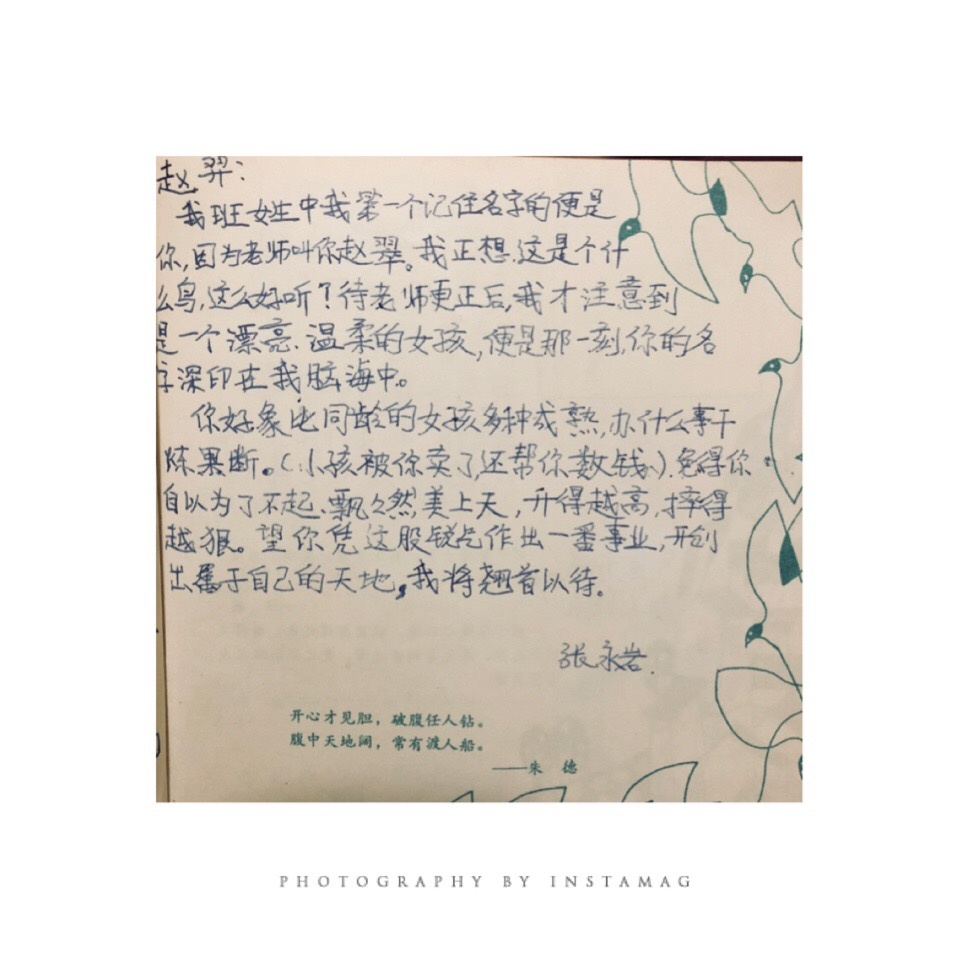 赵羿：
我班女生中我第一个记住名字的便是
你，因为老师叫你赵翠。我正想，这是个什
么鸟，这么好听？待老师更正后，我才注意到
是一个漂亮、温柔的女孩，便是那一刻，你的名
字深印在我脑海中。
你好象比同龄的女孩多种成熟，办什么事干
炼果断。（小孩被你卖了还帮你数钱）.免得你
自以为了不起、飘々然，美上天，升得越高，摔得
越狠。望你凭这股锐气作出一番事业，开创
出属于自己的天地，我将翘首以待。
张永岩.
开心才见胆，破腹任人钻。
腹中天地阔，常有渡人船。
——朱 德
PHOTOGRAPHY BY INSTAMAG